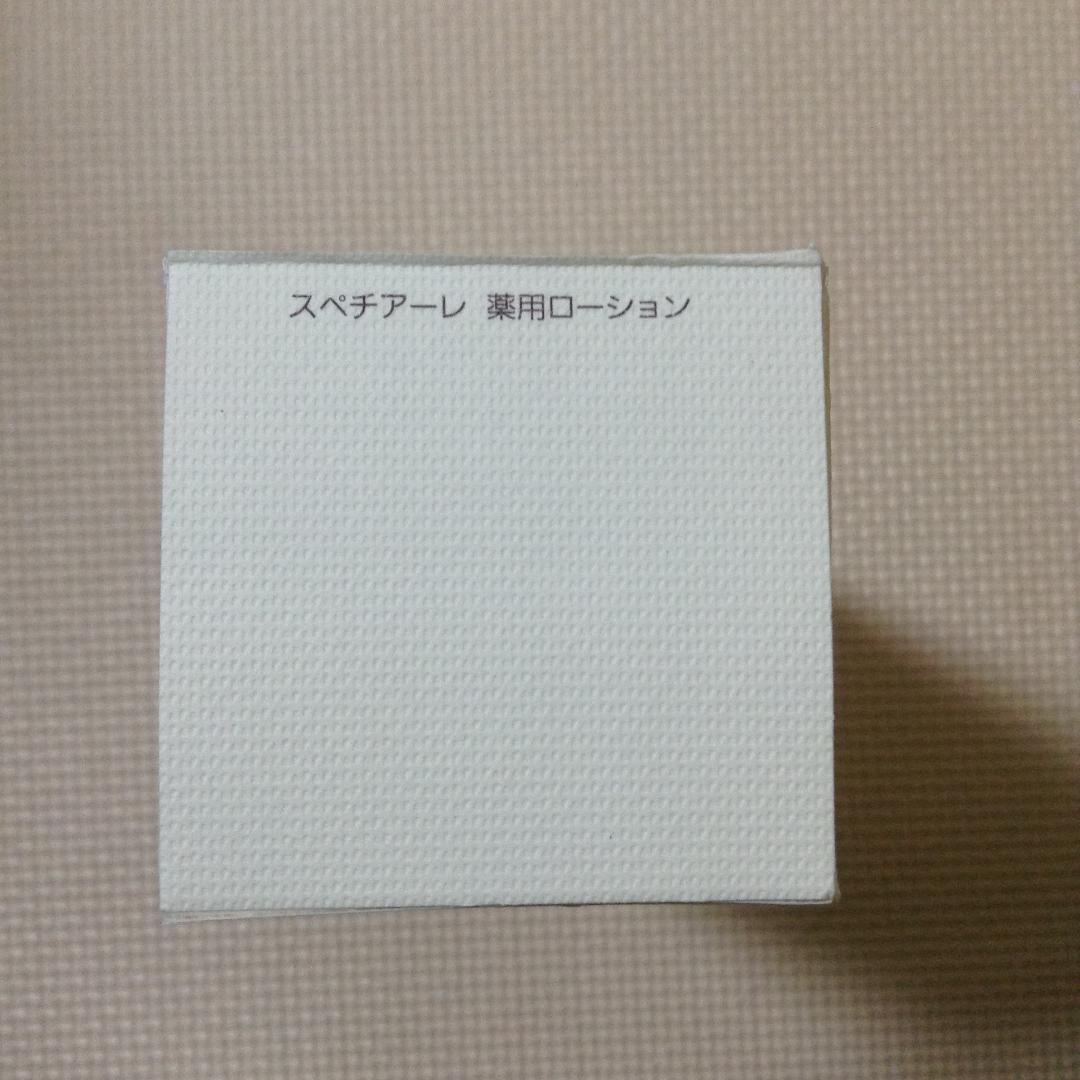 スペチアーレ 薬用ローション